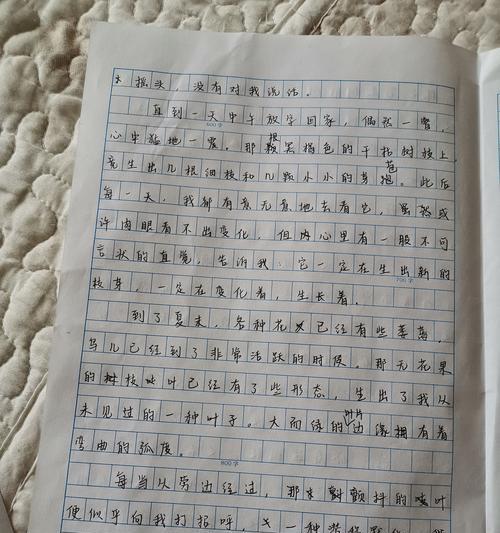 摇头，没有对我说话。
直到一天中午放学回家，偶然一瞥，
600字
心中猛地一震。那根黑褐色的干枯树枝上，
竟生出几根细枝和几颗小小的芽苞。此后
每一天，我都有意无意地去看它，虽然或
许肉眼看不出变化，但内心里有一股不可
言状的直觉，告诉我：它一定在生出新的
700字
枝芽，一定在变化着，生长着。
到了夏末，各种花已经有些萎蔫，
鸟儿已经到了非常活跃的时候。那无花果
的树枝叶已经有了些形态，生出了我从
未见过的一种叶子。大而绿的叶片边缘拥有着
弯曲的弧度。
800字
每当从旁边经过，那颤抖的叶
便似乎向我打招呼，一种